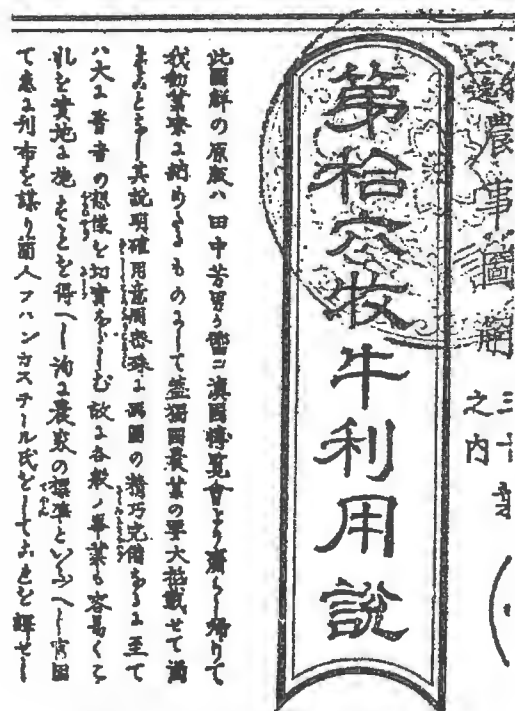 農事圖解
三十一葉
之内
第拾六牧牛利用說
此圖解の原版ハ田中芳男曩ニ澳國博覽會より齎らし帰りて
我勧業寮に納めたるものにして蓋獨國農業の要大抵載せて漏
すことなし其說明確用意周密殊に画圖の精巧完備なるに至て
ハ大に看者の想像を切實ならしむ故に各般ノ事業も容易くこ
れを實地に施すことを得へし洵に農家の標準といふへし官因
て爰に刊布を謀り蘭人フハンカステール氏をしてこれを譯せし